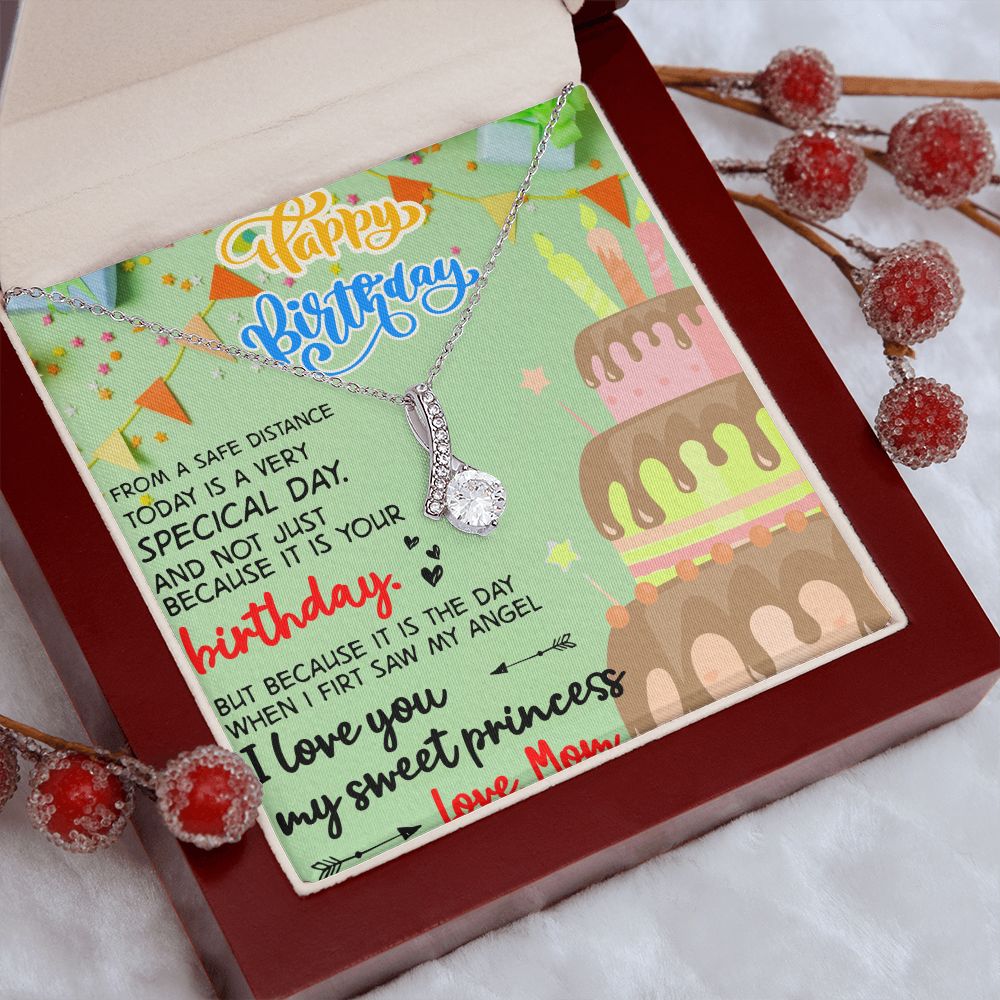 Happy
Birthday
FROM A SAFE DISTANCE
TODAY IS A VERY
SPECICAL DAY.
AND NOT JUST
BECAUSE IT IS YOUR
birthday.
BUT BECAUSE IT IS THE DAY
WHEN I FIRT SAW MY ANGEL
I love you
my sweet princess
love, Mom